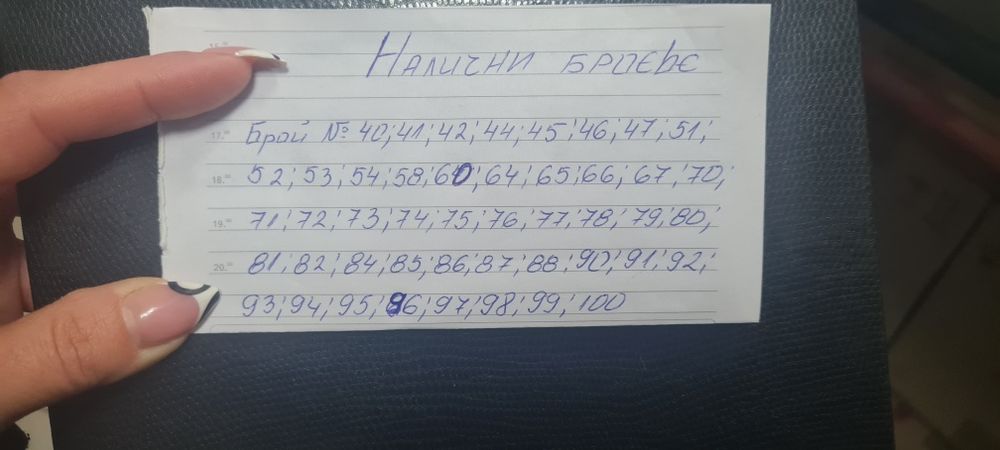 НАЛИЧНИ БРОЄВЄ
Брой № 40; 41; 42; 44; 45; 46; 47; 51;
17.00
52; 53; 54; 58; 60; 64; 65; 66; 67; 70;
18.00
71; 72; 73; 74; 75; 76; 77; 78; 79; 80;
19.00
81; 82; 84; 85; 86; 87; 88; 90; 91; 92;
20.00
93; 94; 95; 96; 97; 98; 99; 100